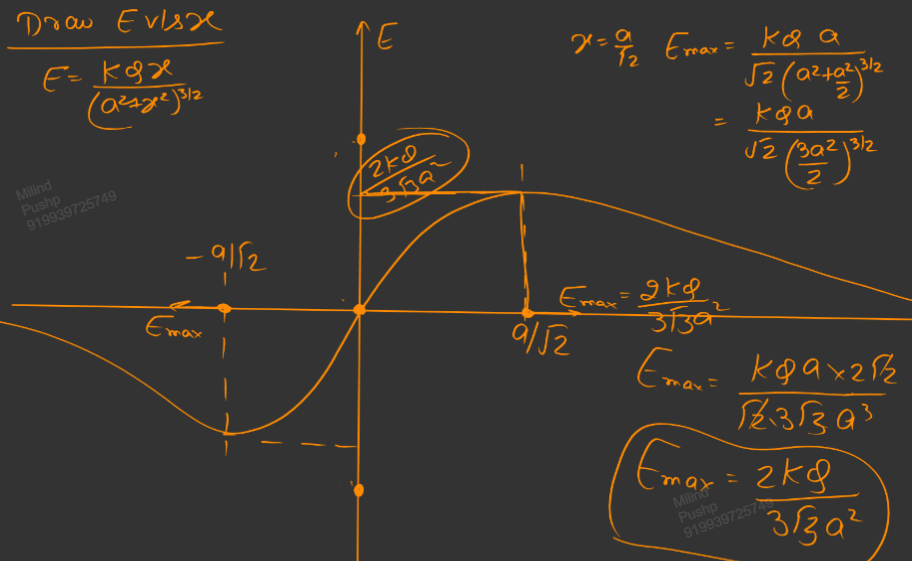 Draw E v/s x
E = KQx / (a²+x²)^3/2
E
x = a/√2 Emax = KQ a / √2 (a²+a²/2)^3/2
= KQa / √2 (3a²/2)^3/2
2KQ / 3√3a²
Milind
Pushp
919939725749
-a/√2
Emax
Emax = 2KQ / 3√3a²
a/√2
Emax = KQa×2√2 / √2·3√3 a³
Emax = 2KQ / 3√3a²
Milind
Pushp
919939725749